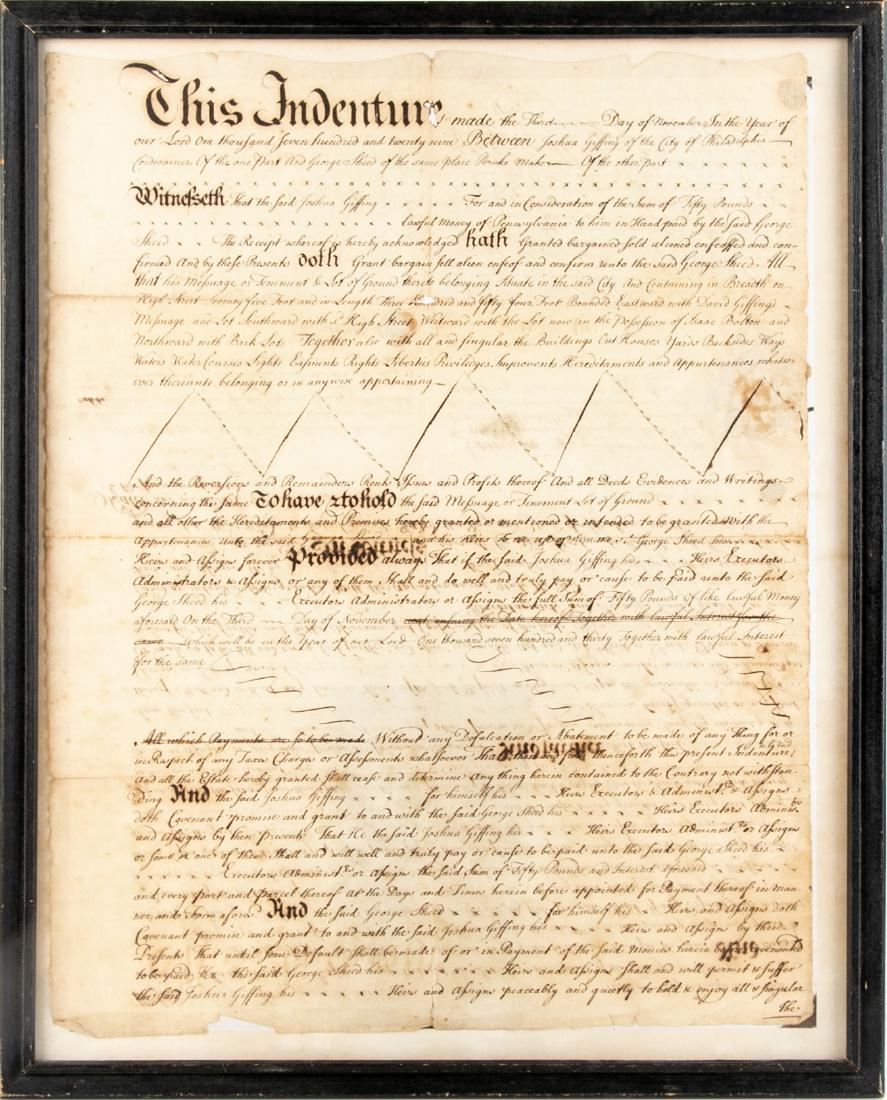 This Indenture made the Third Day of November In the Year of
our Lord One thousand Seven hundred and twenty nine Between Joshua Giffing of the City of Philadelphia
Cordwainer Of the one Part And George Sheed of the same place Maker Of the other part
Witnesseth That the said Joshua Giffing For and in Consideration of the Sum of Fifty Pounds
lawful Money of Pennsylvania to him in Hand paid by the said George
Sheed The Receipt whereof is hereby acknowledged hath Granted bargained sold aliened enfeoffed and con-
firmed And by these Presents doth Grant bargain sell alien enfeof and confirm unto the said George Sheed All
that his Messuage or Tenement & Lot of Ground thereto belonging Situate in the said City And Containing in Breadth on
High Street Seventy five Foot and in Length Three hundred and fifty four Foot Bounded Eastward with David Giffing's
Messuage and Lot Southward with High Street Westward with the Lot now in the Possession of Isaac Bolton and
Northward with Back Lots Together also with all and singular the Buildings Out Houses Yards Backsides Ways
Waters Water Courses Lights Easments Rights Liberties Priviledges Improvents Hereditaments and Appurtenances whatso-
ever thereunto belonging or in any wise appertaining
And the Reversions and Remainders Rents Issues and Profits thereof And all Deeds Evidences and Writings
concerning the same To have & to hold the said Messuage or Tenement Lot of Ground
and all other the Hereditaments and Premises hereby granted or mentioned or intended to be granted With the
Appurtenances unto the said and his Heirs to George Sheed his
Heirs and Assigns forever Provided always That if the said Joshua Giffing his Heirs Executors
Administrators & Assigns or any of them Shall and do well and truly pay or cause to be paid unto the Said
George Sheed his Executors Administrators or Assigns the full Sum of Fifty Pounds of like lawful Money
aforesaid On the Third Day of November next ensuing the Date hereof Together with lawful Interest for the
same Which will be in the Year of our Lord One thousand seven hundred and thirty Together with lawful Interest
for the same
All which Payments are so to be made Without any Defalcation or Abatement to be made of any Thing for or
in Respect of any Taxes Charges or Assessments whatsoever That then and from thenceforth this present Indenture
And all the Estate hereby granted Shall cease and determine Any thing herein contained to the Contrary not withstan-
ding And the said Joshua Giffing for himself his Heirs Executors & Administ.rs & Assigns
doth Covenant promise and grant to and with the said George Sheed his Heirs Executors Administ.rs
and Assigns by these presents That He the said Joshua Giffing his Heirs Executors Administ.rs or Assigns
or some or one of them Shall and will well and truly pay or cause to be paid unto the said George Sheed his
Executors Administ.rs or Assigns the said Sum of Fifty Pounds and Interest aforesaid
and every part and parcel thereof At the Days and Times herein before appointed for Payment thereof in man-
ner and Form afores.d And the said George Sheed for himself his Heirs and Assigns doth
Covenant promise and grant to and with the said Joshua Giffing his Heirs and Assigns by these
Presents That until some Default Shall be made of or in Payment of the said Monies herein before covenanted
to be paid the said George Sheed his Heirs and Assigns Shall and will permit & suffer
the said Joshua Giffing his Heirs and Assigns peaceably and quietly to hold & enjoy all & singular
the